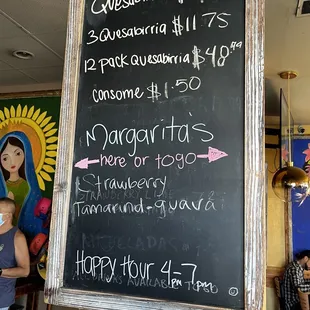 3 Quesabirria $11.75
12 pack Quesabirria $48.99
consome $1.50
Margarita's
here or togo
Strawberry
STRAWBERRY
Tamarind - guava
MICHELADAS
Happy Hour 4pm-7pm
AVAILABLE TOGO